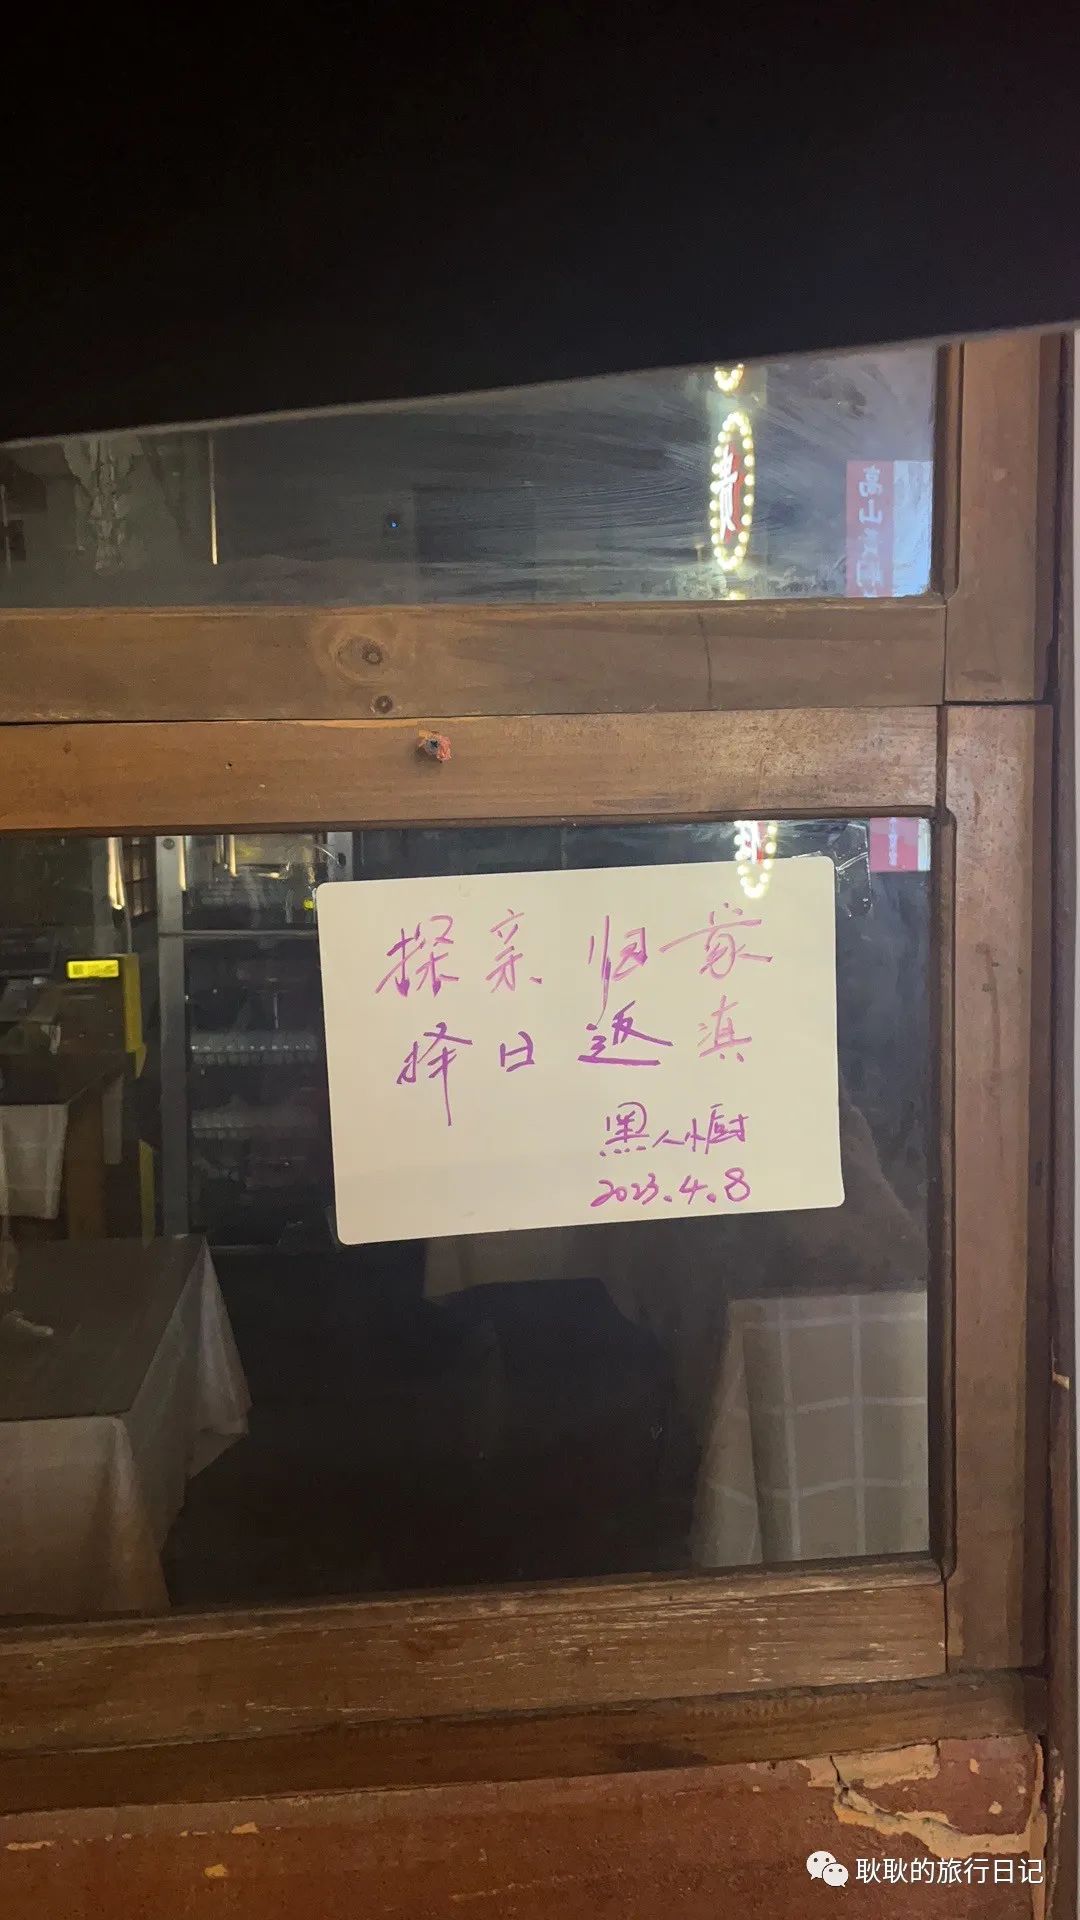 贵
高山
探亲 归蒙
择日返滇
黑人小厨
2023.4.8
耿耿的旅行日记